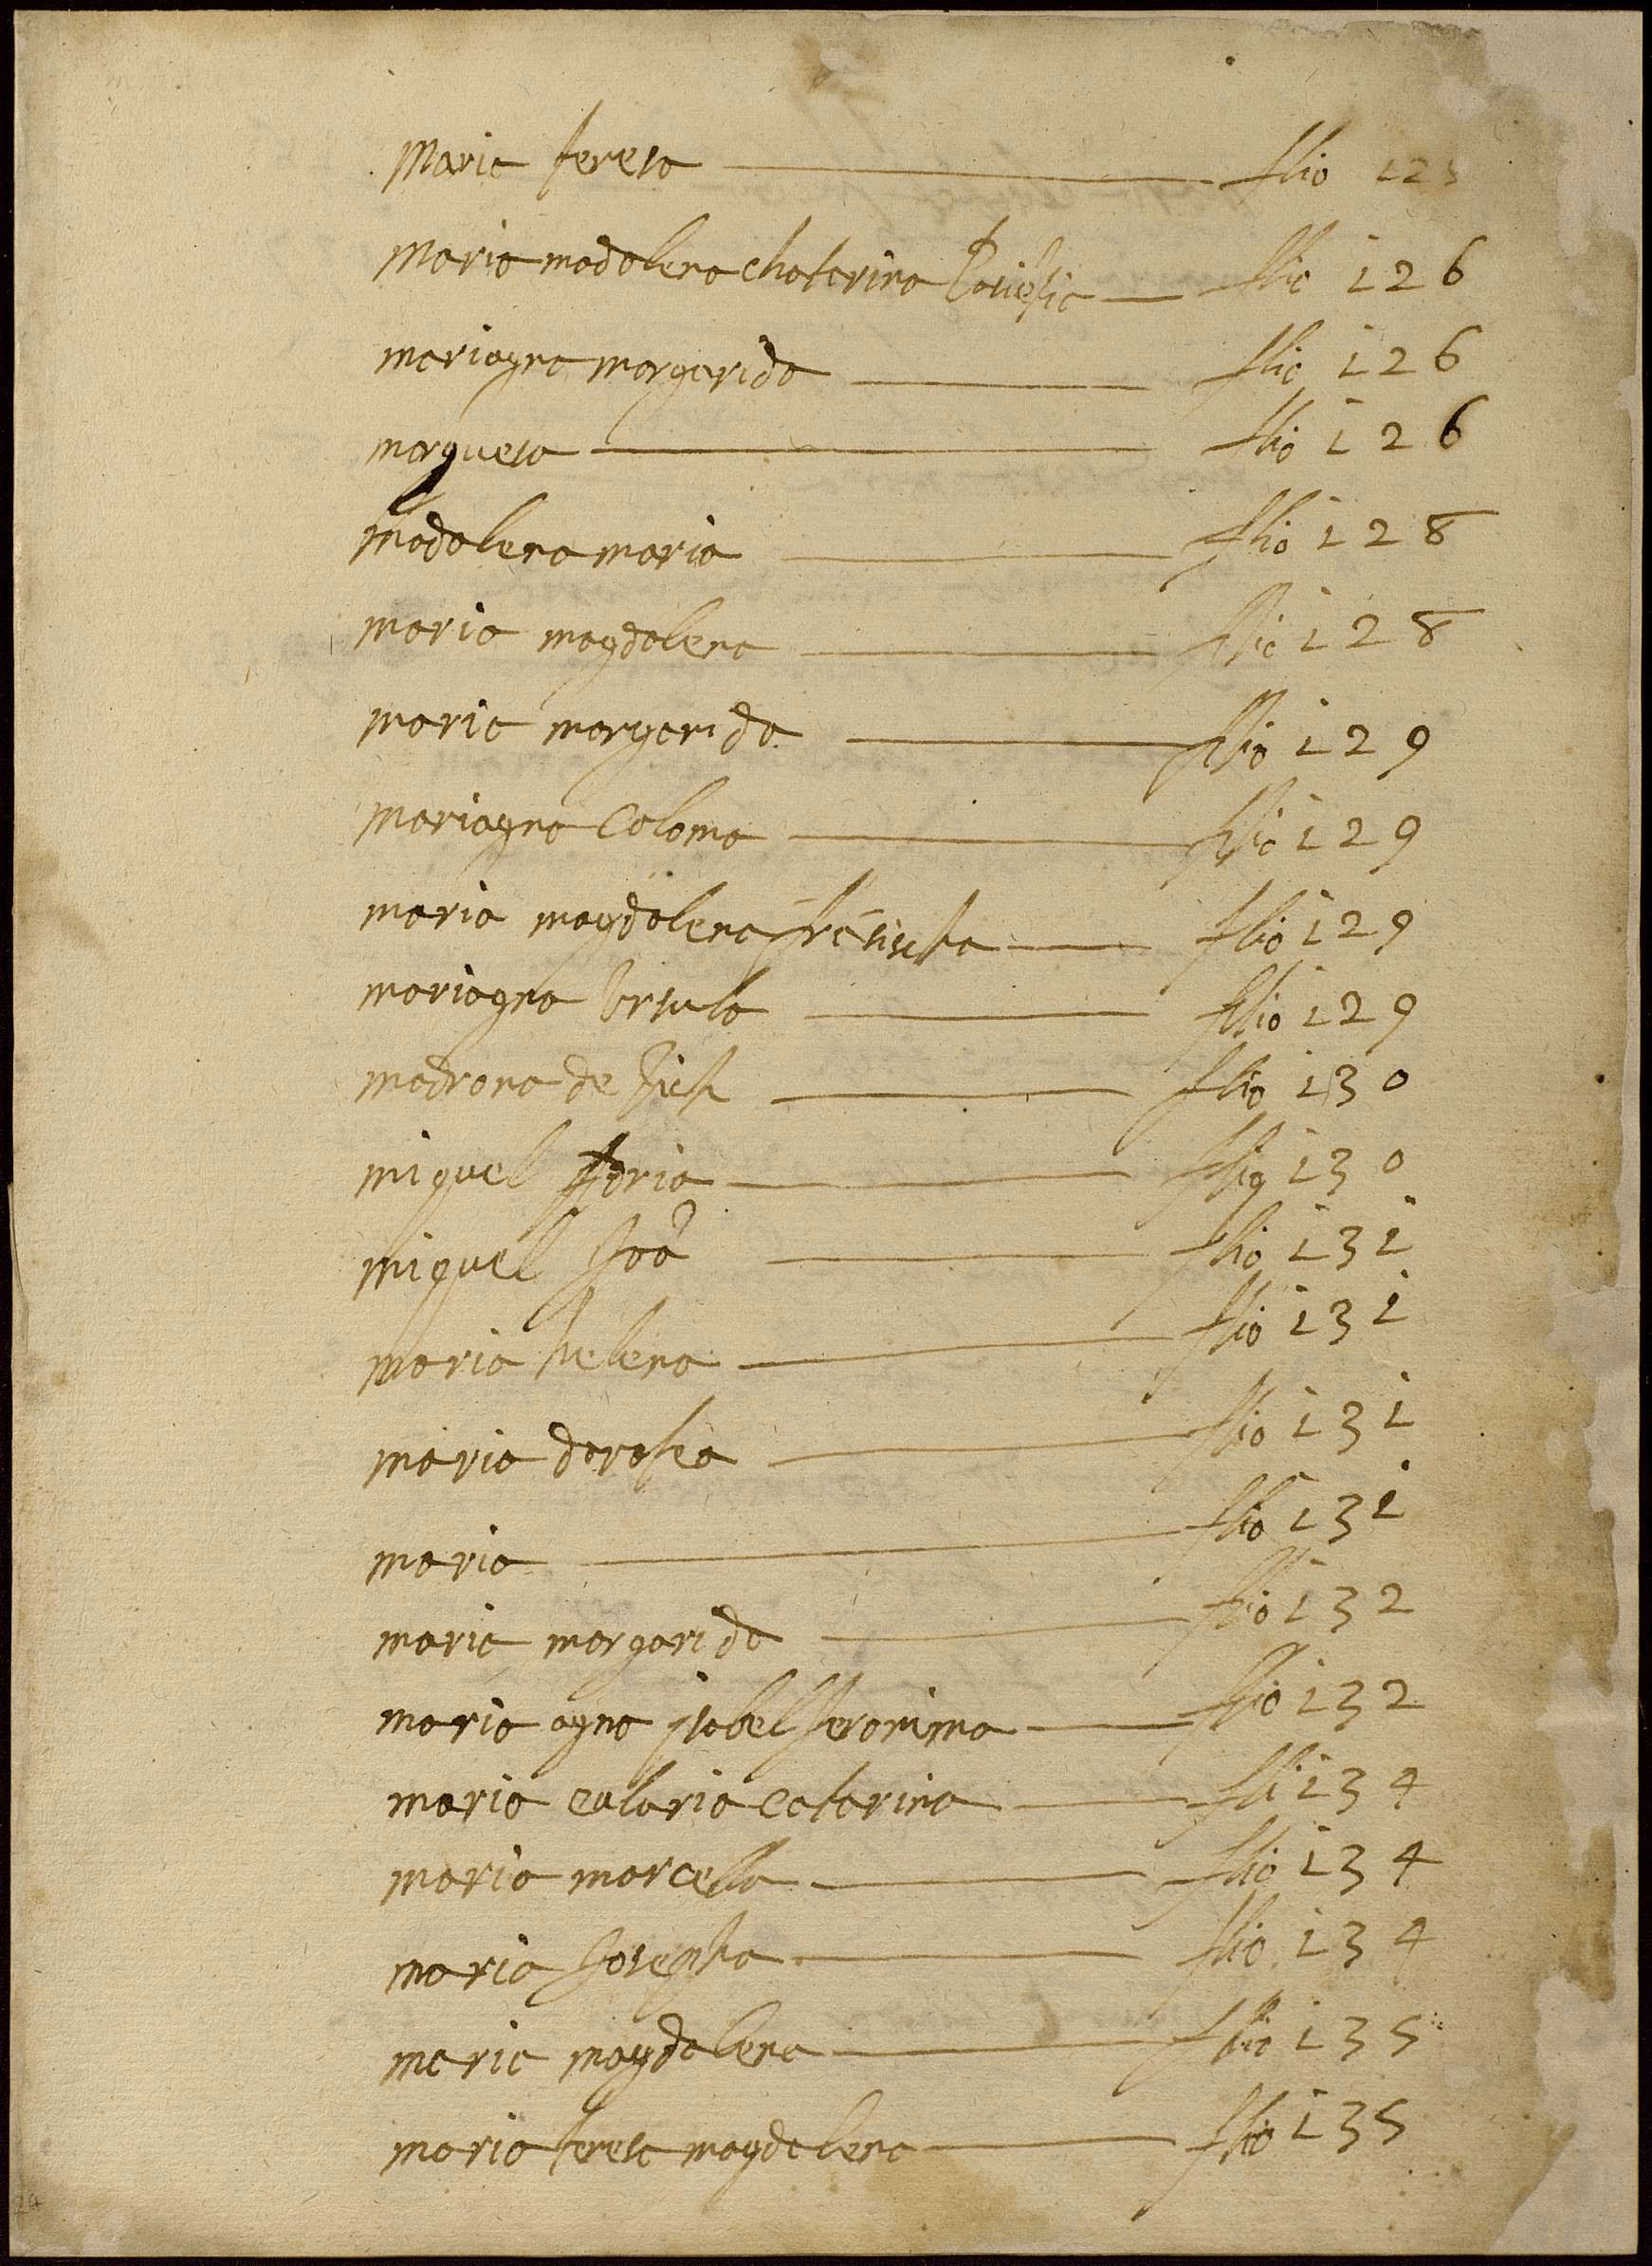 Maria teresa flio 125
Maria madalena chaterina flio 126
mariagna margarida flio 126
marquesa flio 126
madalena maria flio 128
maria magdalena flio 128
maria margarida flio 129
mariagna Coloma flio 129
maria magdalena frāsischa flio 129
mariagna Ursula flio 129
madrona de flio 130
miquel flio 130
miquel Joā flio 131
maria helena flio 131
maria dorotea flio 131
maria flio 131
maria margarida flio 132
maria agna isabel Jeronima flio 132
maria eularia catarina fli 134
maria marcella flio 134
maria Josepha flio 134
maria magdalena flio 135
maria teresa magdalena flio 135